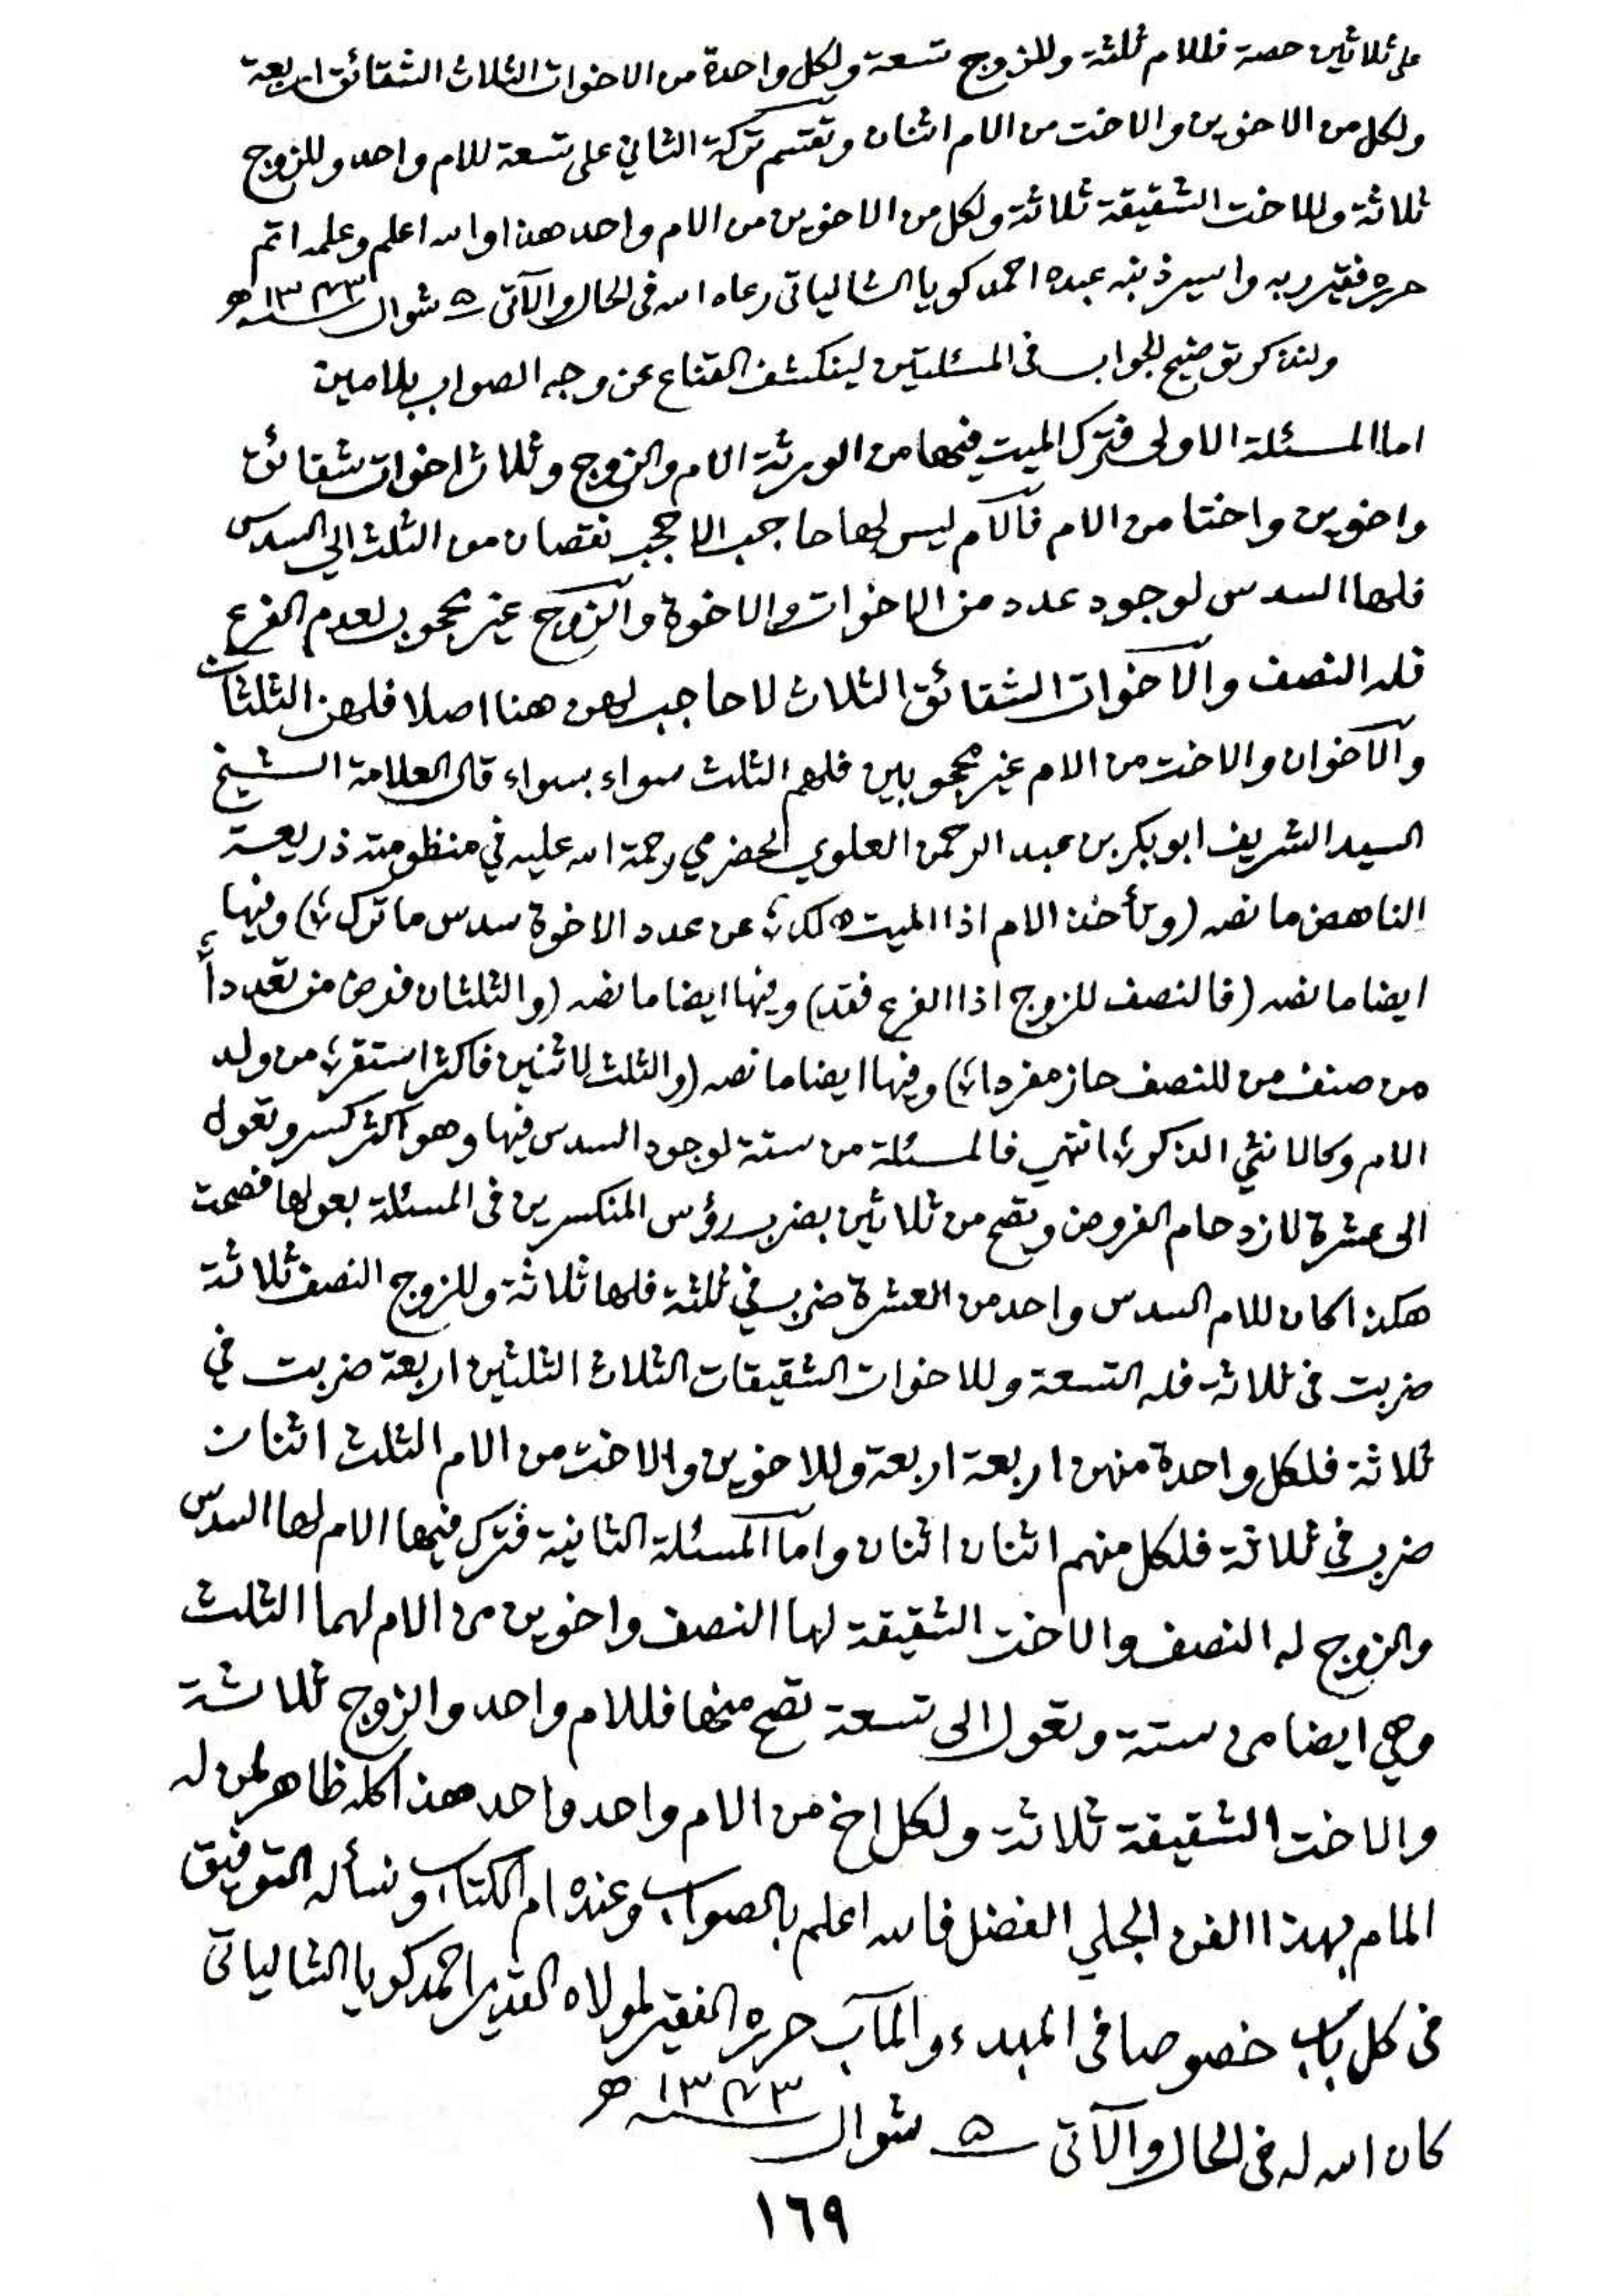 على ثلاثين حصة فللام ثلثة وللزوج تسعة ولكل واحدة من الاخوات الثلاث الشقائق اربعة
ولكل من الاخوين والاخت من الام اثنان وتقتسم تركة الثاني على تسعة للام واحد وللزوج
ثلاثة وللاخت الشقيقة ثلاثة ولكل من الاخوين من الام واحد هذا والله اعلم وعلمه اتم
حرره فقير ربه واسير ذنبه عبده احمد كويا الشالياتى رعاه الله فى الحال والآتى ۵ شوال ۱۳۷۳ ھ
ولنذكر توضيح الجواب فى المسئلتين لينكشف القناع عن وجه الصواب بلا مين
اما المسئلة الاولى فترك الميت فيها من الورثة الام والزوج وثلاث اخوات شقائق
واخوين واختا من الام فالام ليس لها حاجب الا حجب نقصان من الثلث الى السدس
فلها السدس لوجود عدد من الاخوات والاخوة والزوج غير محجوب لعدم الفرع
فله النصف والاخوات الشقائق الثلاث لا حاجب لهن هنا اصلا فلهن الثلثان
والاخوان والاخت من الام غير محجوبين فلهم الثلث سواء بسواء قال العلامة الشيخ
السيد الشريف ابو بكر بن عبد الرحمن العلوي الحضرمي رحمة الله عليه في منظومته ذريعة
الناهض ما نصه (وتأخذ الام اذا الميت هلك ؛ عن عدد الاخوة سدس ما ترك ؛) وفيها
ايضا ما نصه (فالنصف للزوج اذا الفرع فقد) وفيها ايضا ما نصه (والثلثان فرض من تعددا ؛
من صنف من للنصف حاز مفردا ؛) وفيها ايضا ما نصه (والثلث لاثنين فاكثر استقر ؛ من ولد
الام وكالانثي الذكر ؛) انتهي فالمسئلة من ستة لوجود السدس فيها وهو اكثر كسر وتعول
الى عشرة لازدحام الفروض وتصح من ثلاثين بضرب رؤس المنكسرين فى المسئلة بعولها فصحت
هكذا كان للام السدس واحد من العشرة ضرب في ثلثة فلها ثلاثة وللزوج النصف ثلاثة
ضربت فى ثلاثة فله التسعة وللاخوات الشقيقات الثلاث الثلثين اربعة ضربت في
ثلاثة فلكل واحدة منهن اربعة اربعة وللاخوين والاخت من الام الثلث اثنان
ضرب فى ثلاثة فلكل منهم اثنان اثنان واما المسئلة الثانية فترك فيها الام لها السدس
والزوج له النصف والاخت الشقيقة لها النصف واخوين من الام لهما الثلث
وهي ايضا من ستة وتعول الى تسعة تصح منها فللام واحد والزوج ثلاثة
والاخت الشقيقة ثلاثة ولكل اخ من الام واحد واحد هذا كله ظاهر لمن له
المام بهذا الفن الجلي الفضل فالله اعلم بالصواب وعنده ام الكتاب ونسأله التوفيق
فى كل باب خصوصا فى المبدء والمآب حرره الفقير لمولاه القدير احمد كويا الشالياتى
كان الله له فى الحال والآتى ۵ شوال ۱۳۷۳ ھ
١٦٩